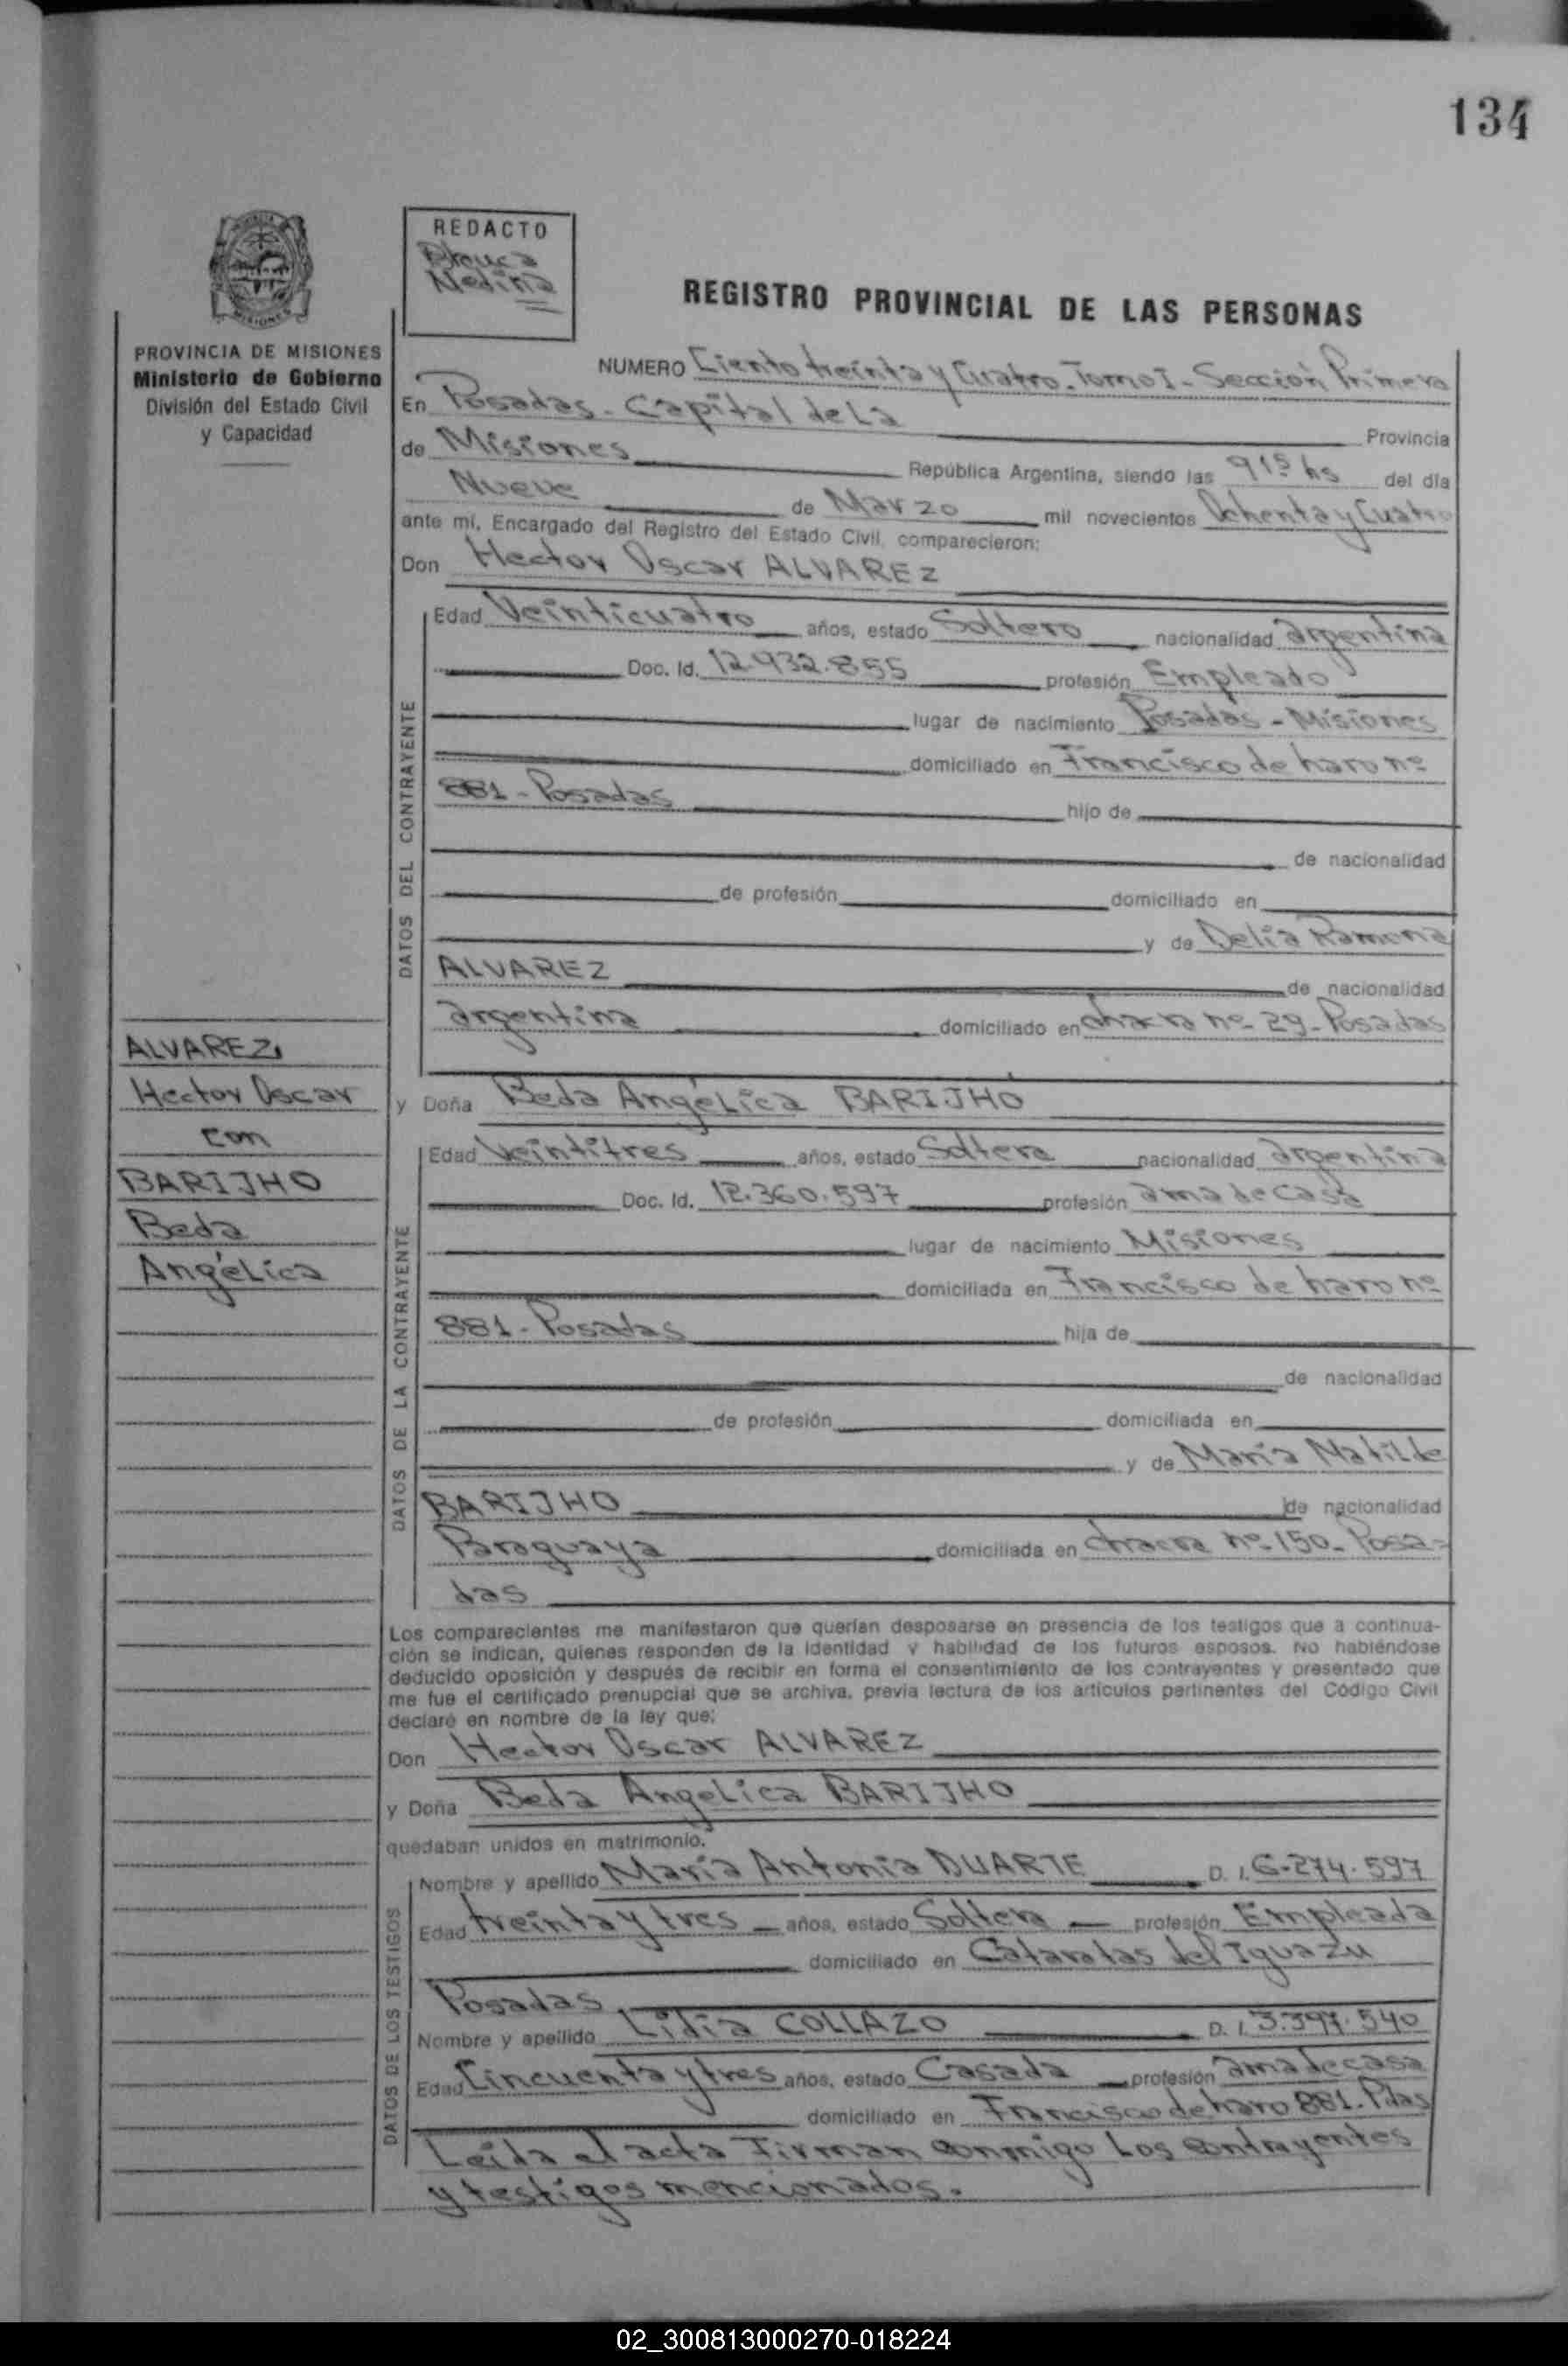 134
REDACTO
Medina
REGISTRO PROVINCIAL DE LAS PERSONAS
PROVINCIA DE MISIONES
Ministerio de Gobierno
División del Estado Civil
y Capacidad
NUMERO Ciento treinta y Cuatro. Tomo I - Sección Primera
En Posadas. Capital de La Provincia
de Misiones República Argentina, siendo las 9 15 hs del día
Nueve de Marzo mil novecientos Ochenta y Cuatro
ante mí, Encargado del Registro del Estado Civil, comparecieron:
Don Hector Oscar ALVAREZ
DATOS DEL CONTRAYENTE
Edad Veinticuatro años, estado Soltero nacionalidad argentina
Doc. Id. 12.932.855 profesión Empleado
lugar de nacimiento Posadas - Misiones
domiciliado en Francisco de haro nº
881 - Posadas hijo de
de nacionalidad
de profesión domiciliado en
y de Delia Ramona
ALVAREZ de nacionalidad
argentina domiciliado en chacra nº 29 - Posadas
ALVAREZ,
Hector Oscar
con
BARIJHO
Beda
Angélica
y Doña Beda Angélica BARIJHO
DATOS DE LA CONTRAYENTE
Edad Veintitres años, estado Soltera nacionalidad argentina
Doc. Id. 12.360.597 profesión ama de casa
lugar de nacimiento Misiones
domiciliada en Francisco de haro nº
881 - Posadas hija de
de nacionalidad
de profesión domiciliada en
y de María Matilde
BARIJHO de nacionalidad
Paraguaya domiciliada en chacra nº 150 - Posa-
das
Los comparecientes me manifestaron que querían desposarse en presencia de los testigos que a continua-
ción se indican, quienes responden de la identidad y habilidad de los futuros esposos. No habiéndose
deducido oposición y después de recibir en forma el consentimiento de los contrayentes y presentado que
me fue el certificado prenupcial que se archiva, previa lectura de los artículos pertinentes del Código Civil
declaré en nombre de la ley que:
Don Hector Oscar ALVAREZ
y Doña Beda Angélica BARIJHO
quedaban unidos en matrimonio.
DATOS DE LOS TESTIGOS
Nombre y apellido María Antonia DUARTE D. I. 6.274.597
Edad treinta y tres años, estado Soltera profesión Empleada
domiciliado en Cataratas del Iguazu
Posadas
Nombre y apellido Lidia COLLAZO D. I. 3.397.540
Edad Cincuenta y tres años, estado Casada profesión ama de casa
domiciliado en Francisco de haro 881. Pdas
Leida el acta Firman conmigo Los contrayentes
y testigos mencionados.
02_300813000270-018224